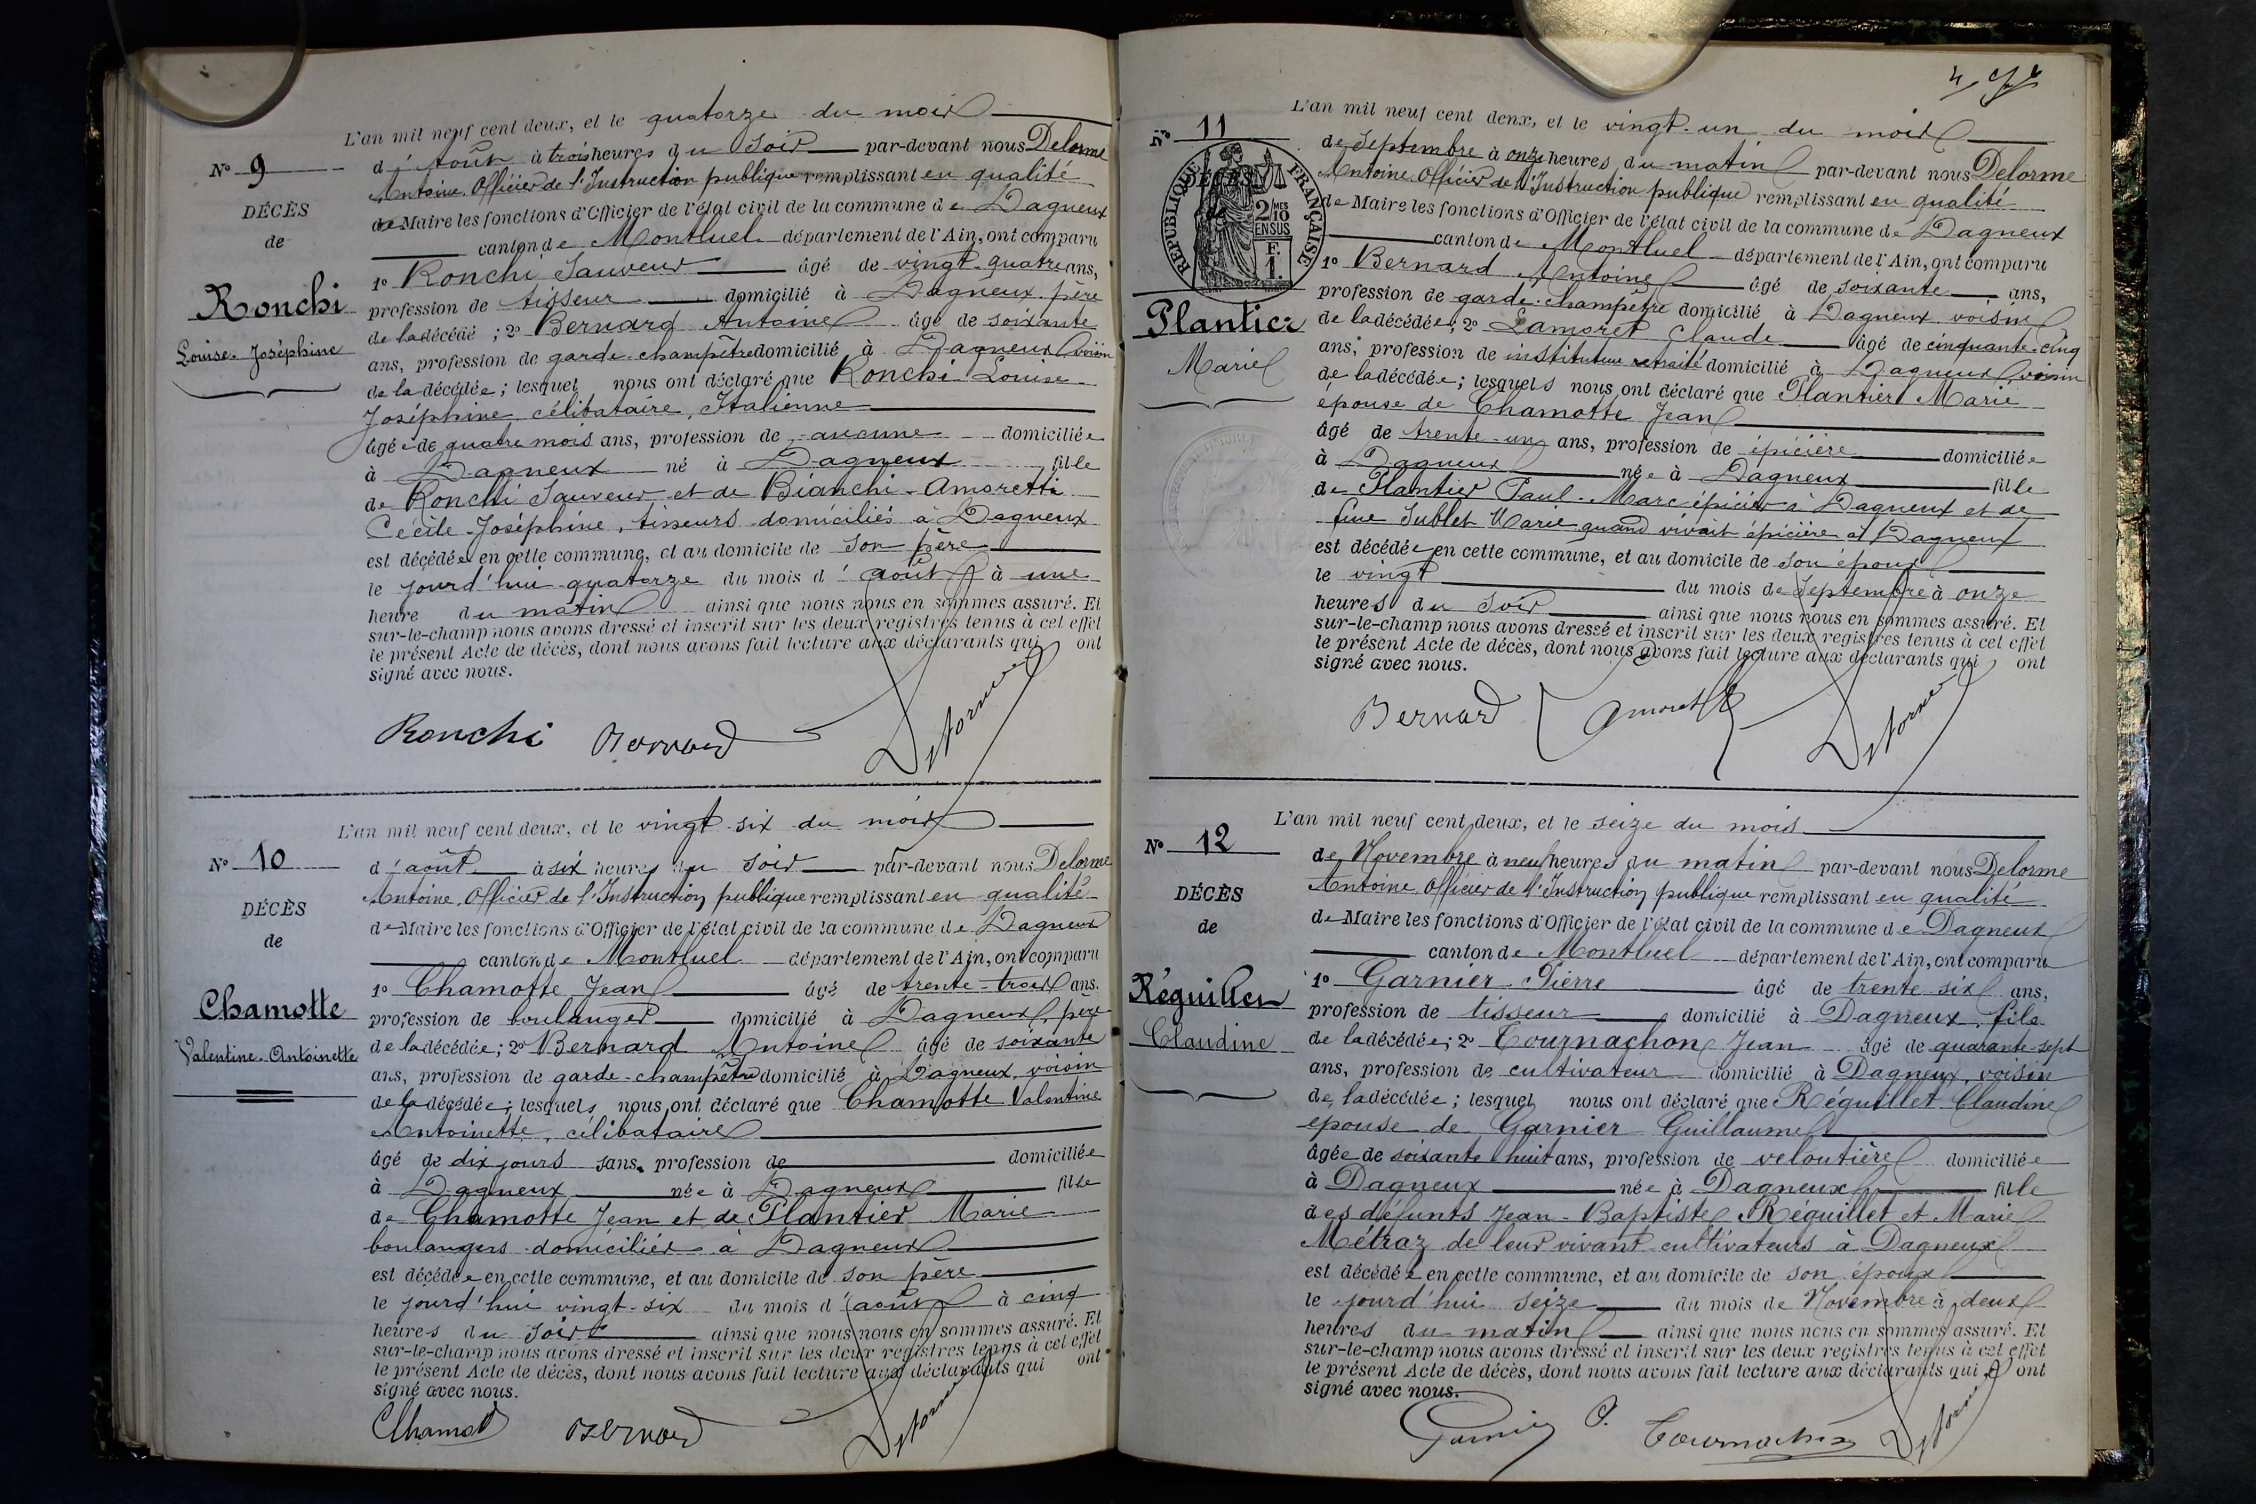 L'an mil neuf cent deux, et le quatorze du mois
N° 9
d'août à trois heures du soir par-devant nous Delorme
Antoine, Officier de l'Instruction publique remplissant en qualité
DÉCÈS
de Maire les fonctions d'Officier de l'état civil de la commune de Dagneux
de
canton de Montluel département de l'Ain, ont comparu
1° Ronchi Sauveur âgé de vingt-quatre ans,
Ronchi
profession de tisseur domicilié à Dagneux, père
de la décédé ; 2° Bernard Antoine âgé de soixante
Louise-Joséphine
ans, profession de garde-champêtre domicilié à Dagneux voisin
de la décédée ; lesquels nous ont déclaré que Ronchi Louise
Joséphine, célibataire, Italienne
âgée de quatre mois ans, profession de aucune domiciliée
à Dagneux né à Dagneux fille
de Ronchi Sauveur et de Bianchi-Amoretti
Cécile-Joséphine, tisseurs domiciliés à Dagneux
est décédée en cette commune, et au domicile de son père
le jourd'hui quatorze du mois d'août à une
heure du matin ainsi que nous nous en sommes assuré. Et
sur-le-champ nous avons dressé et inscrit sur les deux registres tenus à cet effet
le présent Acte de décès, dont nous avons fait lecture aux déclarants qui ont
signé avec nous.
Ronchi Bernard Delorme
L'an mil neuf cent deux, et le vingt-six du mois
N° 10
d'août à six heures du soir par-devant nous Delorme
Antoine, Officier de l'Instruction publique remplissant en qualité
DÉCÈS
de Maire les fonctions d'Officier de l'état civil de la commune de Dagneux
de
canton de Montluel département de l'Ain, ont comparu
1° Chamotte Jean âgé de trente-trois ans,
Chamotte
profession de boulanger domicilié à Dagneux, père
Valentine-Antoinette
de la décédée ; 2° Bernard Antoine âgé de soixante
ans, profession de garde-champêtre domicilié à Dagneux, voisin
de la décédée ; lesquels nous ont déclaré que Chamotte Valentine
Antoinette, célibataire
âgé de dix jours sans profession de domiciliée
à Dagneux née à Dagneux fille
de Chamotte Jean et de Plantier Marie
boulangers domiciliés à Dagneux
est décédée en cette commune, et au domicile de son père
le jourd'hui vingt-six du mois d'août à cinq
heures du soir ainsi que nous nous en sommes assuré. Et
sur-le-champ nous avons dressé et inscrit sur les deux registres tenus à cet effet
le présent Acte de décès, dont nous avons fait lecture aux déclarants qui ont
signé avec nous.
Chamot Bernard Delorme
4
L'an mil neuf cent deux, et le vingt-un du mois
N° 11
de Septembre à onze heures du matin par-devant nous Delorme
Antoine Officier de l'Instruction publique remplissant en qualité
DÉCÈS
RÉPUBLIQUE FRANÇAISE
2/10 MES
EN SUS
F.
1.
de Maire les fonctions d'Officier de l'état civil de la commune de Dagneux
canton de Montluel département de l'Ain, ont comparu
1° Bernard Antoine âgé de soixante ans,
profession de garde-champêtre domicilié à Dagneux voisin
Plantier
de la décédée ; 2° Lamoret Claude âgé de cinquante-cinq
ans, profession de instituteur retraité domicilié à Dagneux voisin
Marie
de la décédée ; lesquels nous ont déclaré que Plantier Marie
épouse de Chamotte Jean
âgé de trente-un ans, profession de épicière domiciliée
à Dagneux née à Dagneux fille
de Plantier Paul-Marc épicier à Dagneux et de
feue Sublet Marie quand vivait épicière à Dagneux
est décédée en cette commune, et au domicile de son époux
le vingt du mois de Septembre à onze
heures du soir ainsi que nous nous en sommes assuré. Et
sur-le-champ nous avons dressé et inscrit sur les deux registres tenus à cet effet
le présent Acte de décès, dont nous avons fait lecture aux déclarants qui ont
signé avec nous.
Bernard Lamoret Delorme
L'an mil neuf cent deux, et le seize du mois
N° 12
de Novembre à neuf heures du matin par-devant nous Delorme
Antoine Officier de l'Instruction publique remplissant en qualité
DÉCÈS
de Maire les fonctions d'Officier de l'état civil de la commune de Dagneux
de
canton de Montluel département de l'Ain, ont comparu
1° Garnier Pierre âgé de trente six ans,
Réguillet
profession de tisseur domicilié à Dagneux, fils
Claudine
de la décédée ; 2° Tournachon Jean âgé de quarante-sept
ans, profession de cultivateur domicilié à Dagneux, voisin
de la décédée ; lesquels nous ont déclaré que Réguillet Claudine
épouse de Garnier Guillaume
âgée de soixante-huit ans, profession de veloutière domiciliée
à Dagneux née à Dagneux fille
des défunts Jean-Baptiste Réguillet et Marie
Métraz de leur vivant cultivateurs à Dagneux
est décédée en cette commune, et au domicile de son époux
le jourd'hui seize du mois de Novembre à deux
heures du matin ainsi que nous nous en sommes assuré. Et
sur-le-champ nous avons dressé et inscrit sur les deux registres tenus à cet effet
le présent Acte de décès, dont nous avons fait lecture aux déclarants qui ont
signé avec nous.
Garnier P. Tournachon Delorme